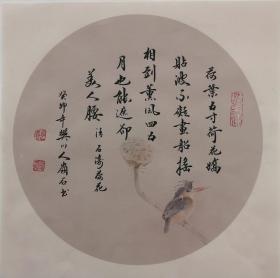 荷葉五寸荷花嬌
貼波不礙畫船搖
相到薰風四五
月也能遮却
美人腰 清石濤荷花
癸卯年吳川人嶺石書